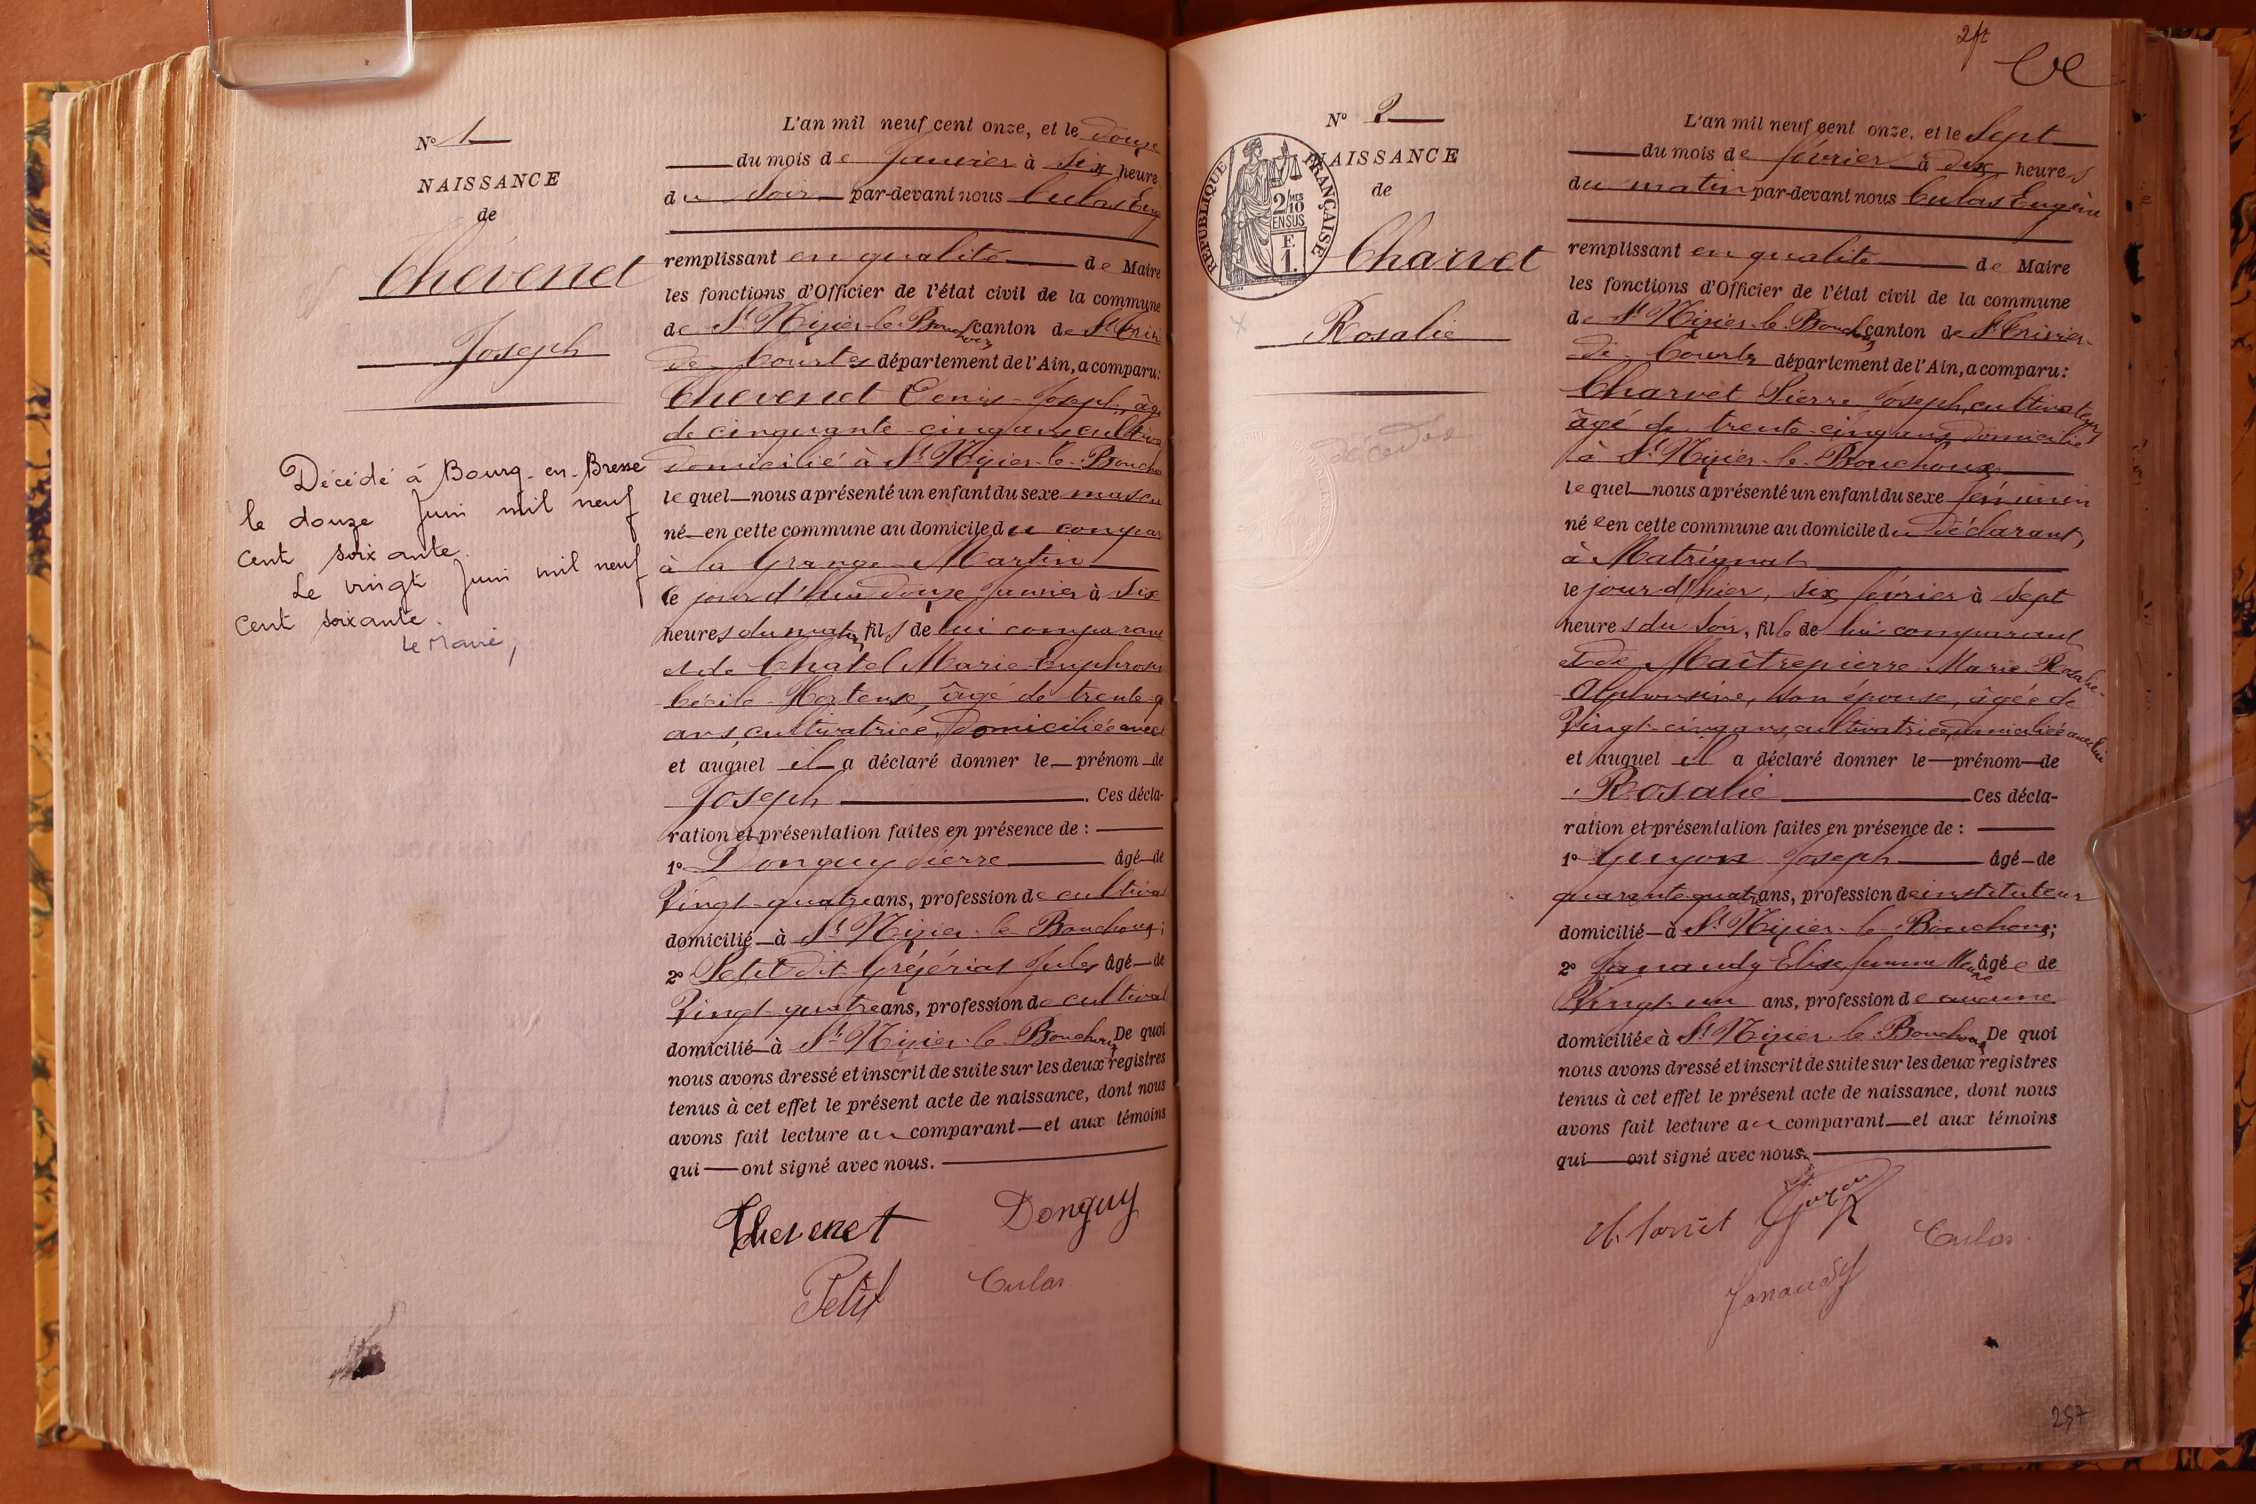 Nº 1
NAISSANCE
de
Chevenet
Joseph
Décédé à Bourg-en-Bresse
le douze Juin mil neuf
cent soixante.
Le vingt Juin mil neuf
cent soixante.
Le Maire,
L'an mil neuf cent onze, et le douze
du mois de Janvier à six heure
du soir par-devant nous Culas Eug
remplissant en qualité de Maire
les fonctions d'Officier de l'état civil de la commune
de St Nizier-le-Bouchoux canton de St Trivi
de Courtes département de l'Ain, a comparu:
Chevenet Denis Joseph, âgé
de cinquante-cinq ans cultiva
domicilié à St Nizier-le-Boucho
lequel nous a présenté un enfant du sexe mascu
né en cette commune au domicile du compar
à la Grange Martin
le jour d'hui douze Janvier à six
heures du matin, fils de lui comparant
et de Chatel Marie Euphros
Cécile Hortense, âgé de trente-q
ans, cultivatrice, domiciliée avec
et auquel il a déclaré donner le prénom de
Joseph. Ces décla-
ration et présentation faites en présence de :
1º Donguy Pierre âgé de
Vingt-quatre ans, profession de cultiva
domicilié à St Nizier-le-Bouchoux;
2º Petit dit Grégérias Jules âgé de
Vingt-quatre ans, profession de cultivat
domicilié à St Nizier-le-Bouchoux De quoi
nous avons dressé et inscrit de suite sur les deux registres
tenus à cet effet le présent acte de naissance, dont nous
avons fait lecture au comparant et aux témoins
qui ont signé avec nous.
Chevenet Donguy
Petit Culas
Nº 2
NAISSANCE
de
RÉPUBLIQUE FRANÇAISE
2/10 MES
EN SUS
F.
1.
Charvet
Rosalie
décédée
L'an mil neuf cent onze, et le Sept
du mois de février à dix heures
du matin par-devant nous Culas Eugène
remplissant en qualité de Maire
les fonctions d'Officier de l'état civil de la commune
de St Nizier-le-Bouchoux canton de St Trivier-
de-Courtes département de l'Ain, a comparu:
Charvet Pierre Joseph, cultivateur
âgé de trente-cinq ans, domicilié
à St Nizier-le-Bouchoux
lequel nous a présenté un enfant du sexe féminin
née en cette commune au domicile du déclarant,
à Matrignat
le jour d'hier, six février à sept
heures du soir, fille de lui comparant
et de Maîtrepierre Marie Rosalie-
Alphonsine, son épouse, âgée de
Vingt-cinq ans, cultivatrice, domiciliée avec lui
et auquel il a déclaré donner le prénom de
Rosalie Ces décla-
ration et présentation faites en présence de :
1º Guyon Joseph âgé de
quarante-quatre ans, profession de instituteur
domicilié à St Nizier-le-Bouchoux;
2º Janaudy Elise, femme âgée de
Vingt-un ans, profession de aucune
domiciliée à St Nizier-le-Bouchoux De quoi
nous avons dressé et inscrit de suite sur les deux registres
tenus à cet effet le présent acte de naissance, dont nous
avons fait lecture au comparant et aux témoins
qui ont signé avec nous.
Charvet Guyon
Janaudy Culas
257